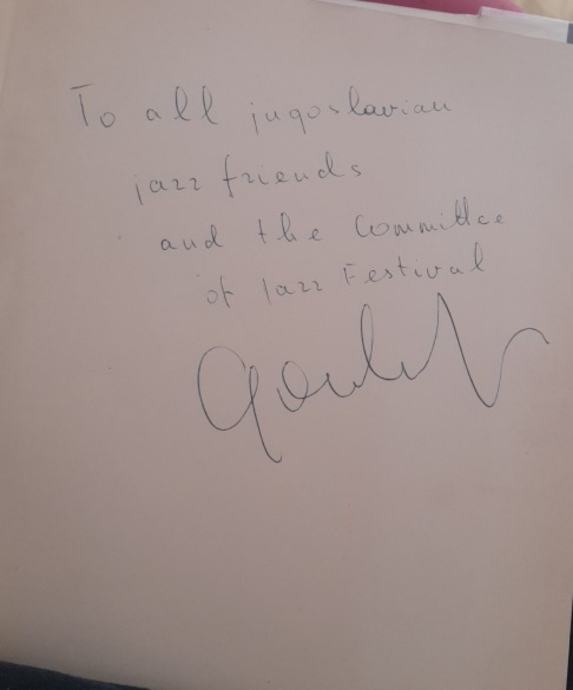 To all jugoslavian
jazz friends
and the Committee
of Jazz Festival